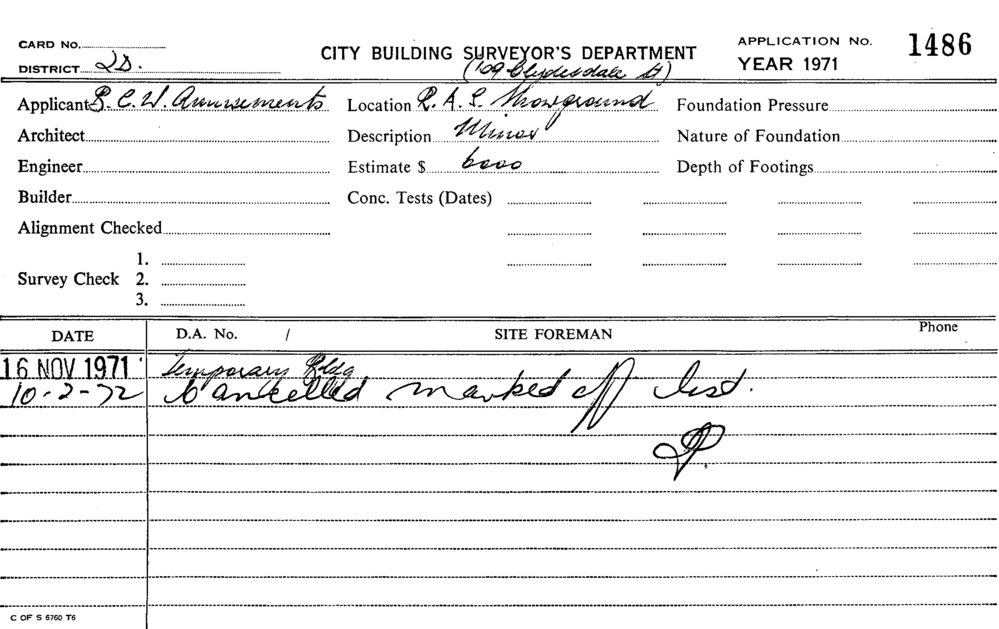 CARD No.
CITY BUILDING SURVEYOR'S DEPARTMENT
APPLICATION No. 1486
DISTRICT 2D.
(109 Clydesdale St)
YEAR 1971
Applicant R.C.W. Amusements Location R.A.S. Showground Foundation Pressure
Architect Description Minor Nature of Foundation
Engineer Estimate $ 6000 Depth of Footings
Builder Conc. Tests (Dates)
Alignment Checked
1.
Survey Check 2.
3.
DATE D.A. No. / SITE FOREMAN Phone
16 NOV 1971 Temporary Bldg
10-2-72 Cancelled marked off list.
C OF S 6760 T6